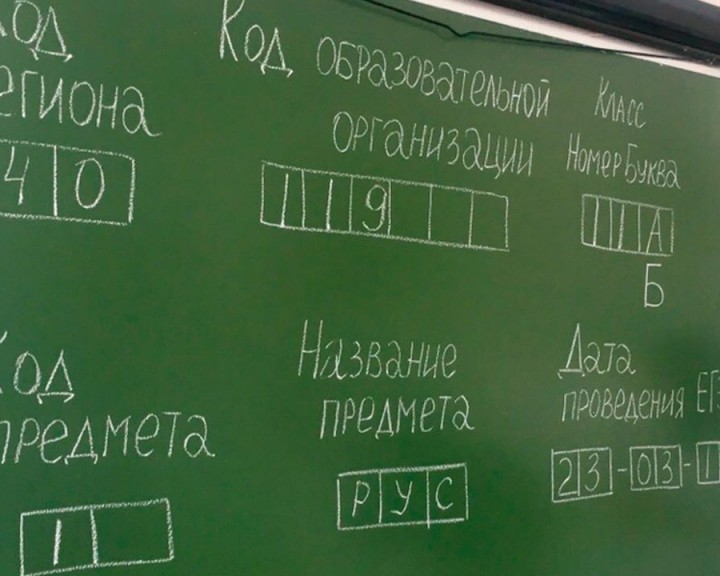 Код
Региона
40
Код образовательной
организации
119
Класс
Номер Буква
11А
Б
Код
предмета
1
Название
предмета
РУС
Дата
проведения ЕГ
23-03-1